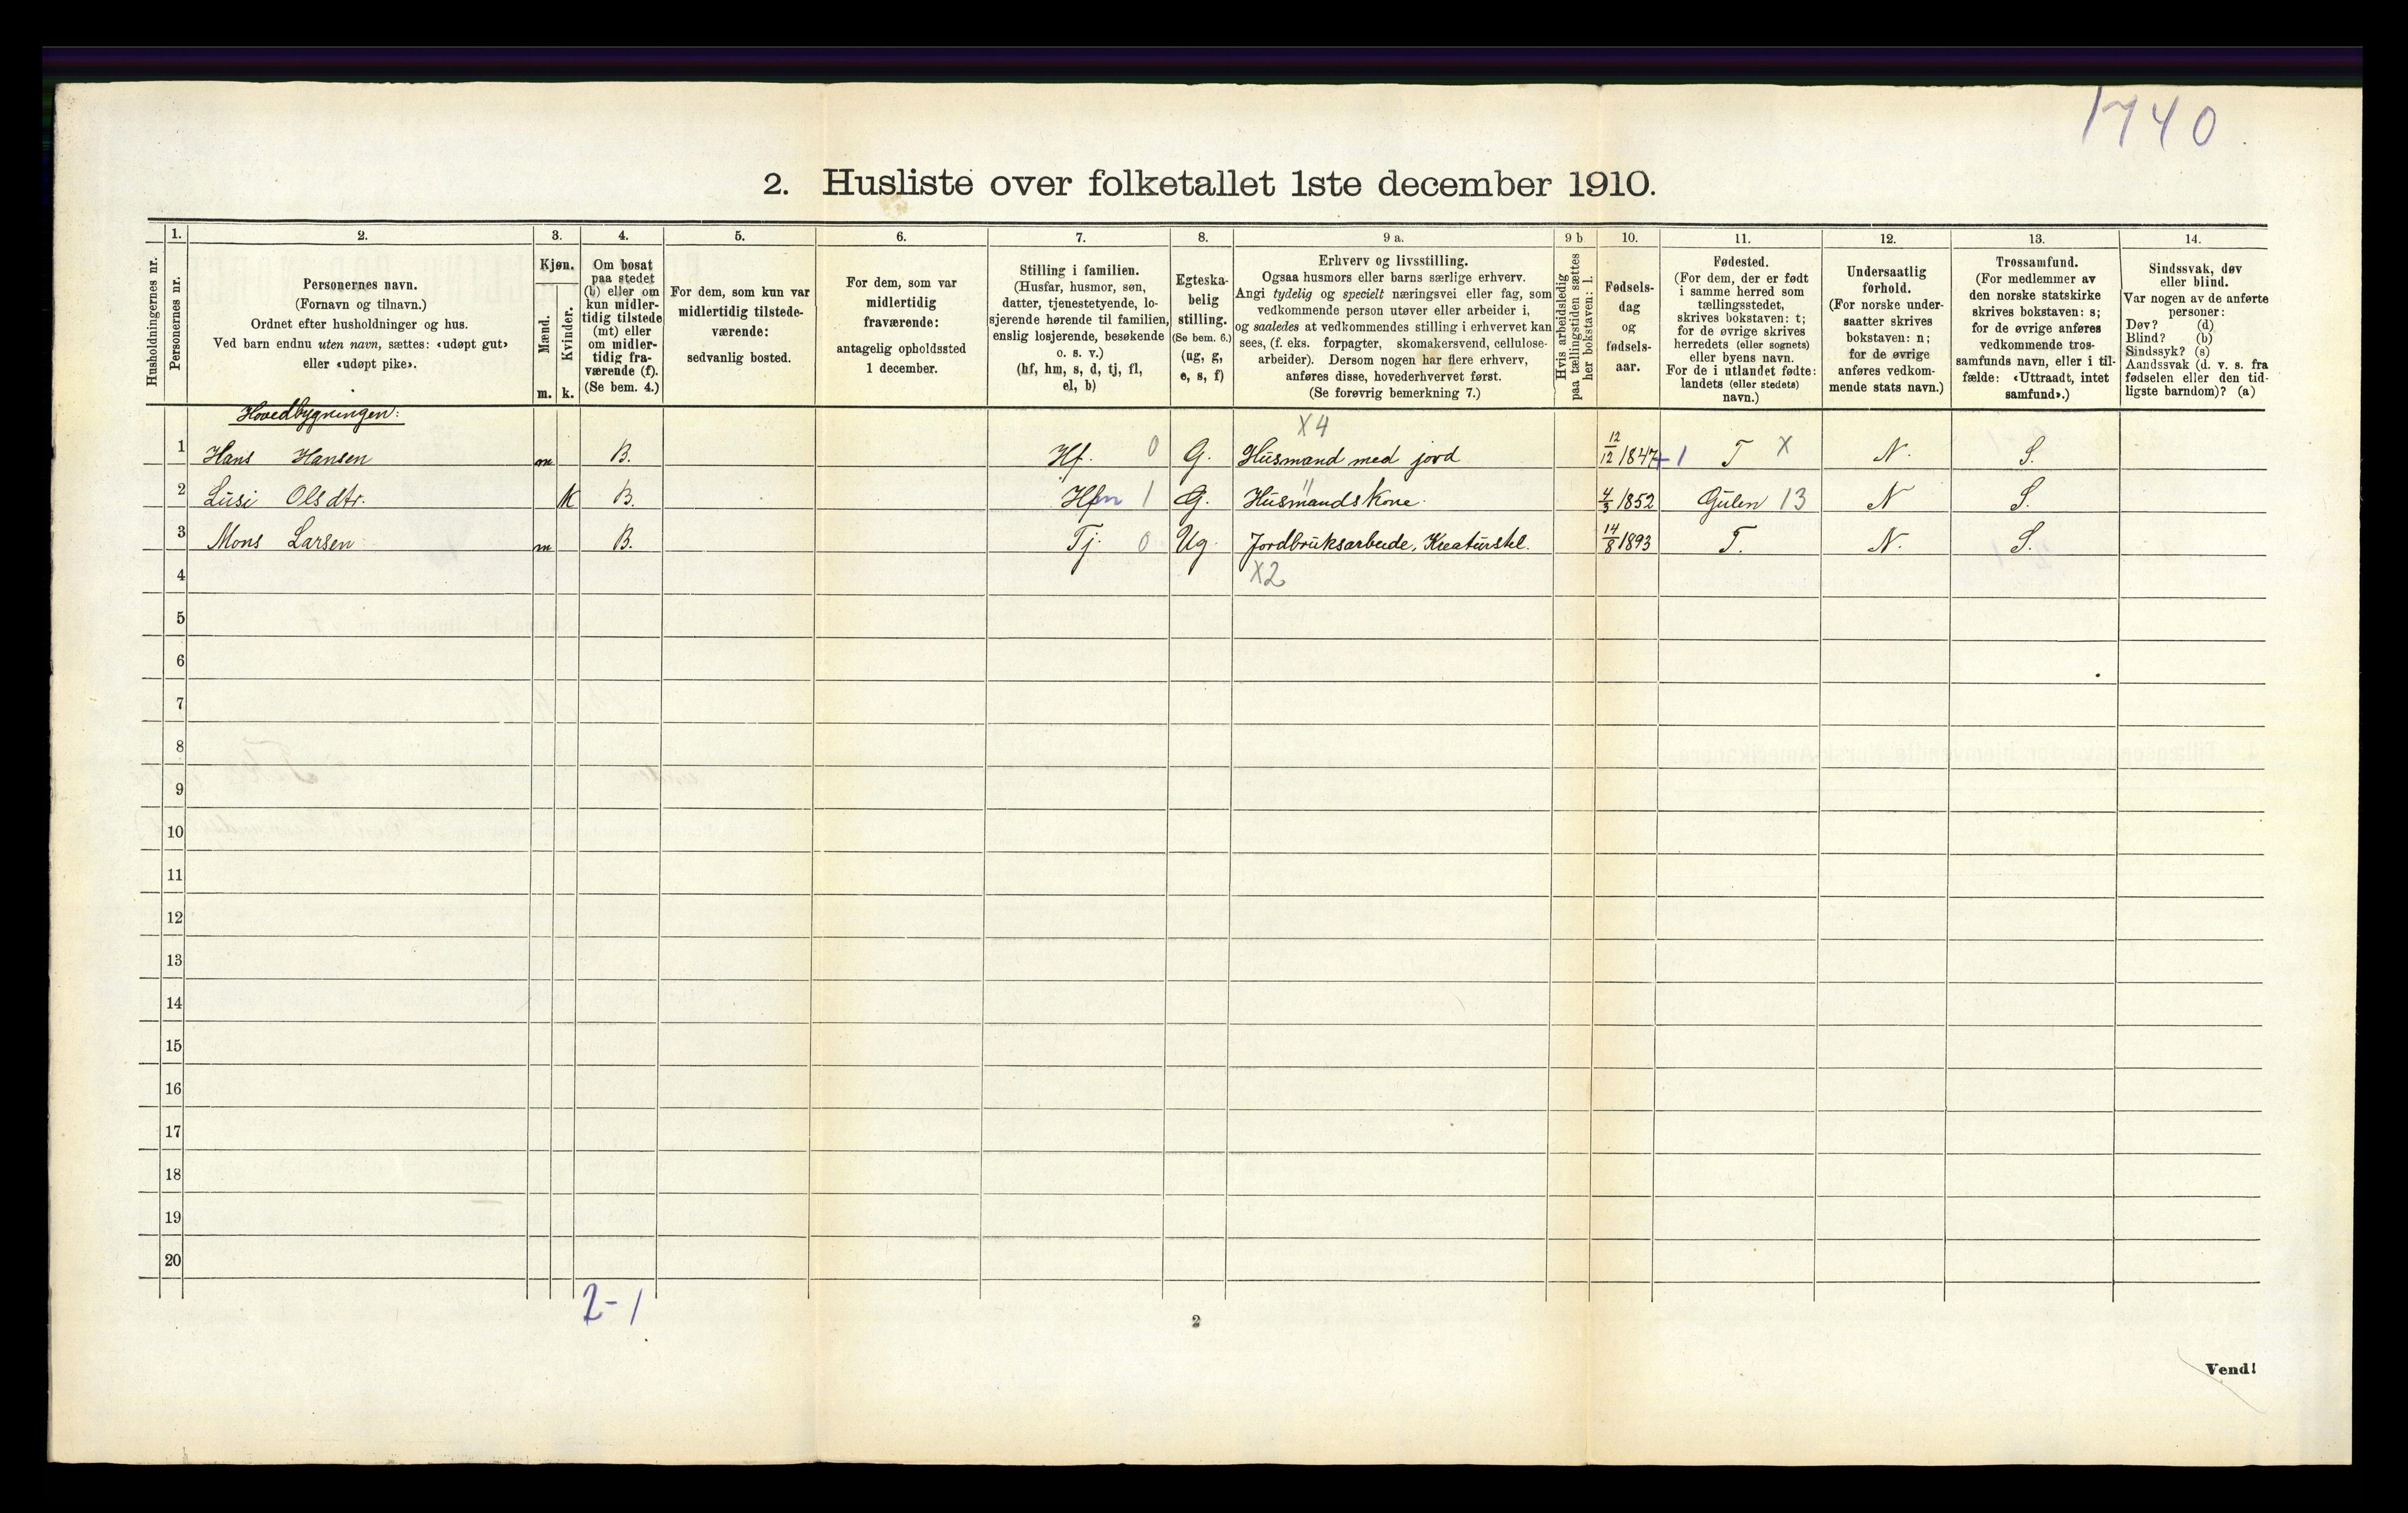 1740
2. Husliste over folketallet 1ste december 1910.
Husholdningernes nr.
1.
Personernes nr.
2.
Personernes navn.
(Fornavn og tilnavn.)
Ordnet efter husholdninger og hus.
Ved barn endnu uten navn, sættes: «udøpt gut»
eller «udøpt pike».
3.
Kjøn.
Mænd.
m.
Kvinder.
k.
4.
Om bosat
paa stedet
(b) eller om
kun midler-
tidig tilstede
(mt) eller
om midler-
tidig fra-
værende (f).
(Se bem. 4.)
5.
For dem, som kun var
midlertidig tilstede-
værende:
sedvanlig bosted.
6.
For dem, som var
midlertidig
fraværende:
antagelig opholdssted
1 december.
7.
Stilling i familien.
(Husfar, husmor, søn,
datter, tjenestetyende, lo-
sjerende hørende til familien,
enslig losjerende, besøkende
o. s. v.)
(hf, hm, s, d, tj, fl,
el, b)
8.
Egteska-
belig
stilling.
(Se bem. 6.)
(ug, g,
e, s, f)
9 a.
Erhverv og livsstilling.
Ogsaa husmors eller barns særlige erhverv.
Angi tydelig og specielt næringsvei eller fag, som
vedkommende person utøver eller arbeider i,
og saaledes at vedkommendes stilling i erhvervet kan
sees, (f. eks. forpagter, skomakersvend, cellulose-
arbeider). Dersom nogen har flere erhverv,
anføres disse, hovederhvervet først.
(Se forøvrig bemerkning 7.)
9 b
Hvis arbeidsledig
paa tællingstiden sættes
her bokstaven: l.
10.
Fødsels-
dag
og
fødsels-
aar.
11.
Fødested.
(For dem, der er født
i samme herred som
tællingsstedet,
skrives bokstaven: t;
for de øvrige skrives
herredets (eller sognets)
eller byens navn.
For de i utlandet fødte:
landets (eller stedets)
navn.)
12.
Undersaatlig
forhold.
(For norske under-
saatter skrives
bokstaven: n;
for de øvrige
anføres vedkom-
mende stats navn.)
13.
Trossamfund.
(For medlemmer av
den norske statskirke
skrives bokstaven: s;
for de øvrige anføres
vedkommende tros-
samfunds navn, eller i til-
fælde: «Uttraadt, intet
samfund».)
14.
Sindssvak, døv
eller blind.
Var nogen av de anførte
personer:
Døv? (d)
Blind? (b)
Sindssyk? (s)
Aandssvak (d. v. s. fra
fødselen eller den tid-
ligste barndom)? (a)
Hovedbygningen:
X4
1 Hans Hansen m B. Hf. 0 G. Husmand med jord 12/12 1847 +1 T X N. S.
2 Lusi Olsdtr. K B. Hfm 1 G. Husmands Kone. " 4/3 1852 Gulen 13 N S.
3 Mons Larsen m B. Tj. 0 Ug. Jordbruksarbeide, Kreaturstel. 14/8 1893 T. N. S.
4 X2
5
6
7
8
9
10
11
12
13
14
15
16
17
18
19
20
2-1
2
Vend!